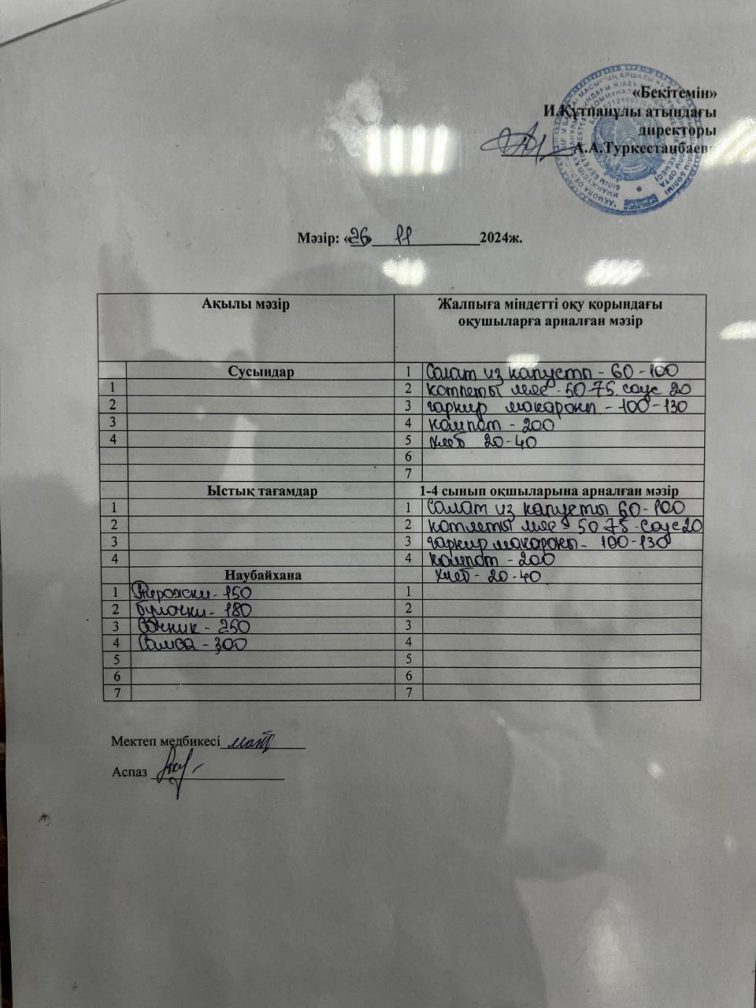 «Бекітемін»
И.Құтпанұлы атындағы
директоры
А.А.Туркестанбаева
Мәзір: «26» 11 2024ж.
Ақылы мәзір
Жалпыға міндетті оқу қорындағы
оқушыларға арналған мәзір
Сусындар
1 Салат из капусты - 60-100
1
2 котлеты мяс - 50-75 соус 20
2
3 гарнир макароны - 100-130
3
4 компот - 200
4
5 хлеб 20-40
6
7
Ыстық тағамдар
1-4 сынып оқшыларына арналған мәзір
1
1 Салат из капусты 60-100
2
2 котлеты мяс - 50 75 - соус 20
3
3 гарнир макароны - 100-130
4
4 компот - 200
Наубайхана
хлеб - 20-40
1 Пирожки - 150
1
2 булочки - 180
2
3 Сочник - 250
3
4 Самса - 300
4
5
5
6
6
7
7
Мектеп медбикесі
Аспаз